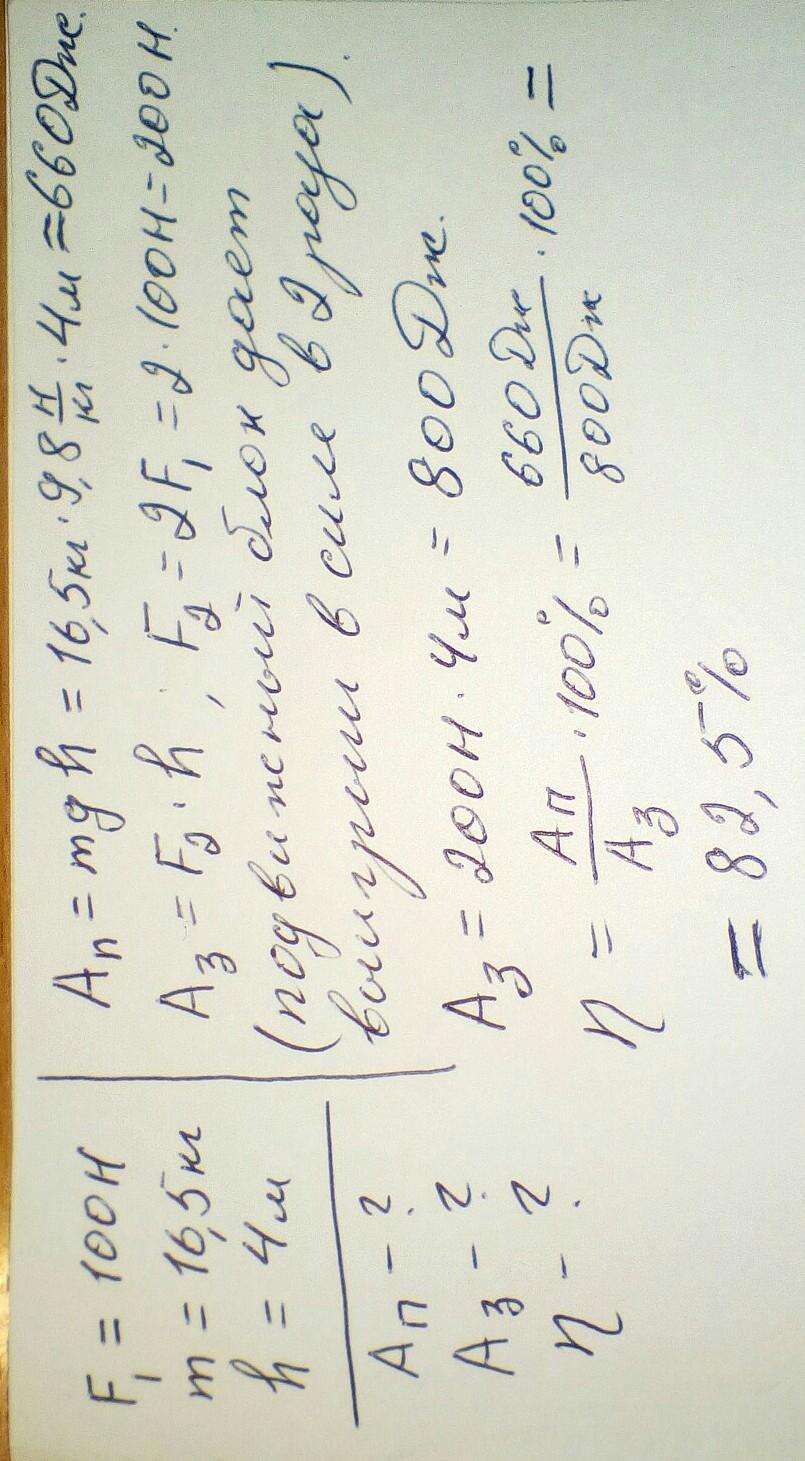 F₁ = 100Н
m = 16,5кг
h = 4м
Aп – ?
Aз – ?
η – ?
Aп = mgh = 16,5кг · 9,8 Н/кг · 4м = 660Дж.
Aз = F₂ · h ; F₂ = 2F₁ = 2 · 100Н = 200Н.
(подвижный блок дает
выигрыш в силе в 2 раза).
Aз = 200Н · 4м = 800Дж.
η = Aп/Aз · 100% = 660Дж/800Дж · 100% =
= 82,5%